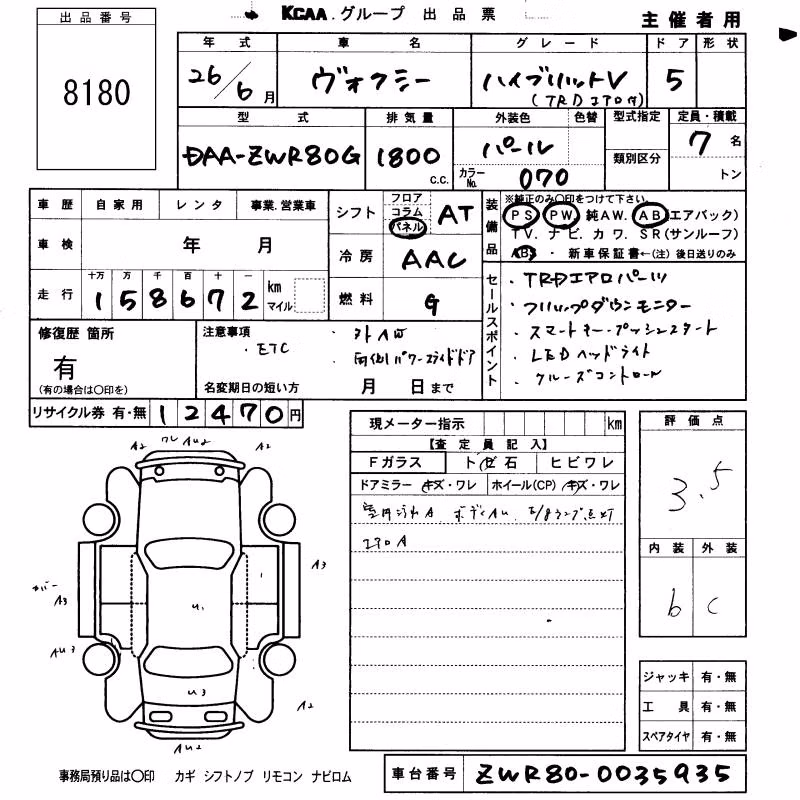 出品番号
8180
KCAA.グループ 出品票
主催者用
年式 車名 グレード ドア 形状
26/6月 ヴォクシー ハイブリットV (TRDエアロ付) 5
型式 排気量 外装色 色替 型式指定 定員・積載
DAA-ZWR80G 1800 c.c. パール 7名
カラーNo. 070 類別区分 トン
車歴 自家用 レンタ 事業.営業車
車検 年 月
走行 十万 万 千 百 十 一
158672 km マイル
シフト フロア コラム パネル AT
冷房 AAC
燃料 G
装備品 ※純正のみ○印をつけて下さい。
PS PW 純AW. AB エアバック)
TV. ナビ. カワ. SR(サンルーフ)
ABS ・ 新車保証書←(注) 後日送りのみ
セールスポイント
・TRDエアロパーツ
・フリップダウンモニター
・スマートキー・プッシュスタート
・LEDヘッドライト
・クルーズコントロール
修復歴 箇所
有
(有の場合は○印を)
注意事項
・ETC
・両側パワースライドドア
名変期日の短い方 月 日まで
リサイクル券 有・無 12470円
現メーター指示 km
【査定員記入】
Fガラス トビ石 ヒビワレ
ドアミラー キズ・ワレ ホイール(CP) キズ・ワレ
室内汚れA ボディAU
エアロA
評価点
3.5
内装 外装
b c
ジャッキ 有・無
工具 有・無
スペアタイヤ 有・無
A2 ワレ AU2 A2
A3
カバー
A3
U1
AU3
U3
A2
AU2
事務局預り品は○印 カギ シフトノブ リモコン ナビロム
車台番号 ZWR80-0035935